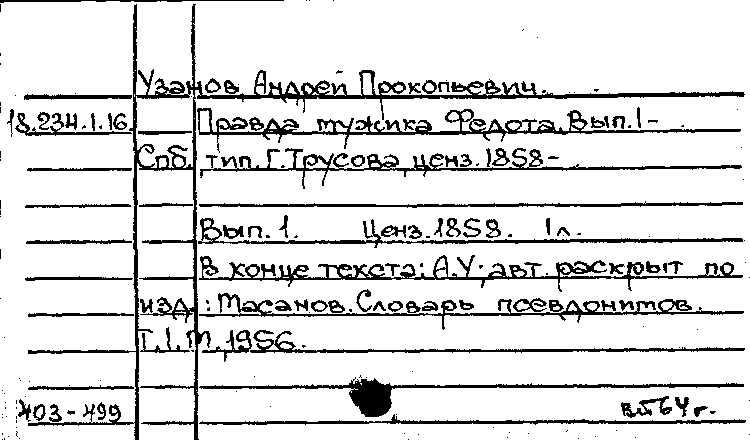 Узанов, Андрей Прокопьевич.
18.234.1.16. Правда мужика Федота. Вып. 1-
Спб., тип. Г. Трусова, ценз. 1858-
Вып. 1. Ценз. 1858. 1 л.
В конце текста: А.У; авт. раскрыт по
изд.: Масанов. Словарь псевдонимов.
Т. 1. М., 1956.
403-499 64 г.